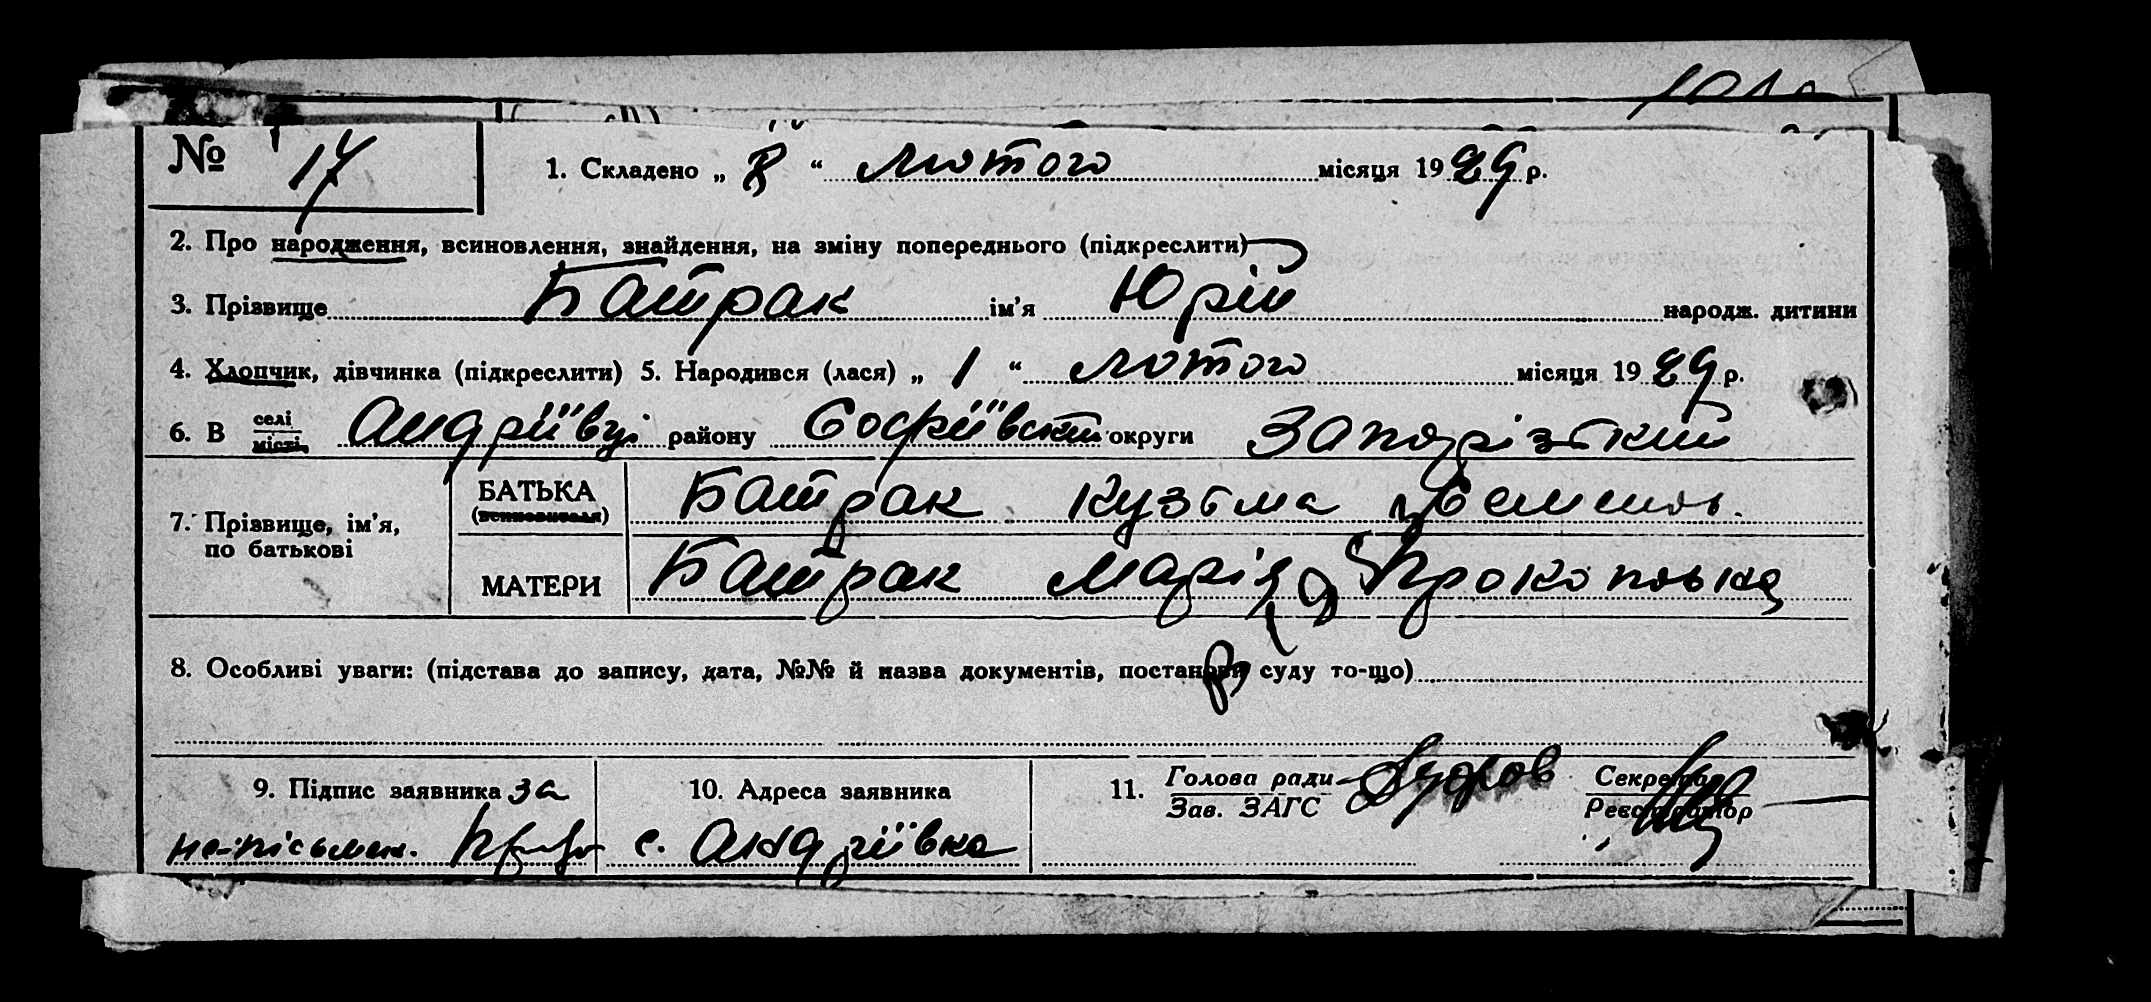 № 14
1. Складено „ 8 “ лютого місяця 1929 р.
2. Про народження, всиновлення, знайдення, на зміну попереднього (підкреслити)
3. Прізвище Батрак ім’я Юрій народж. дитини
4. Хлопчик, дівчинка (підкреслити) 5. Народився (лася) „ 1 “ лютого місяця 1929 р.
6. В селі місті, Андріївці району Софіївськ округи Запорізький
7. Прізвище, ім’я, по батькові
БАТЬКА (всиновителя) Батрак Кузьма
МАТЕРИ Батрак Марія Прокопівна
8. Особливі уваги: (підстава до запису, дата, №№ й назва документів, постанови суду то-що)
9. Підпис заявника за
не-пісьмен.
10. Адреса заявника
с. Андріївка
11. Голова ради Зав. ЗАГС
Секретар Реєстратор